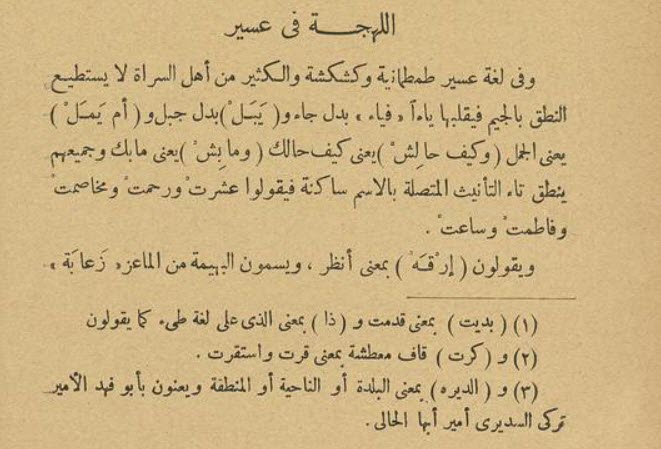 اللهجة فى عسير
وفى لغة عسير طمطمانية وكشكشة والكثير من أهل السراة لا يستطيع
النطق بالجيم فيقلبها ياءاً « فياء » بدل جاء و ( يَبَلْ ) بدل جبل و ( أم يَمَلْ )
يعنى الجمل ( وكيف حالِشْ ) يعنى كيف حالك ( وما بِشْ ) يعنى مابك وجميعهم
ينطق تاء التأنيث المتصلة بالاسم ساكنة فيقولوا عشرتْ ورحمتْ ومخاصمتْ
وفاطمتْ وساعتْ .
ويقولون ( إرْقَهْ ) بمعنى أنظر ، ويسمون البهيمة من الماعز « زَعابَة »
(١) ( بديت ) بمعنى قدمت و ( ذا ) بمعنى الذى على لغة طىء كما يقولون
(٢) و ( كرت ) قاف معطشة بمعنى قرت واستقرت .
(٣) و ( الديره ) بمعنى البلدة أو الناحية أو المنطقة ويعنون بأبو فهد الأمير
تركى السديرى أمير أبها الحالى .